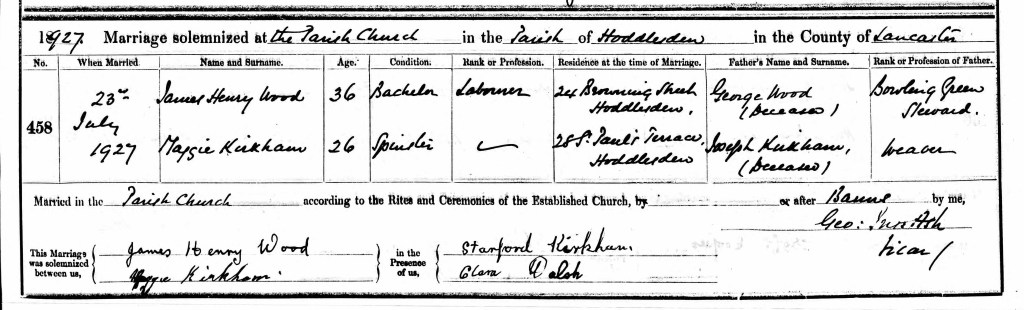 1927. Marriage solemnized at the Parish Church in the Parish of Hoddlesden in the County of Lancaster
No. When Married. Name and Surname. Age. Condition. Rank or Profession. Residence at the time of Marriage. Father's Name and Surname. Rank or Profession of Father.
458
23rd July 1927
James Henry Wood 36 Bachelor Labourer 24 Browning Street Hoddlesden, George Wood (Deceased) Bowling Green Steward.
Maggie Kirkham 26 Spinster 28 St. Paul's Terrace, Hoddlesden Joseph Kirkham, (Deceased) Weaver
Married in the Parish Church according to the Rites and Ceremonies of the Established Church, by or after Banns by me,
Geo:
Vicar
This Marriage was solemnized between us, James Henry Wood in the Presence of us, Stanford Kirkham
Maggie Kirkham. Clara Walsh